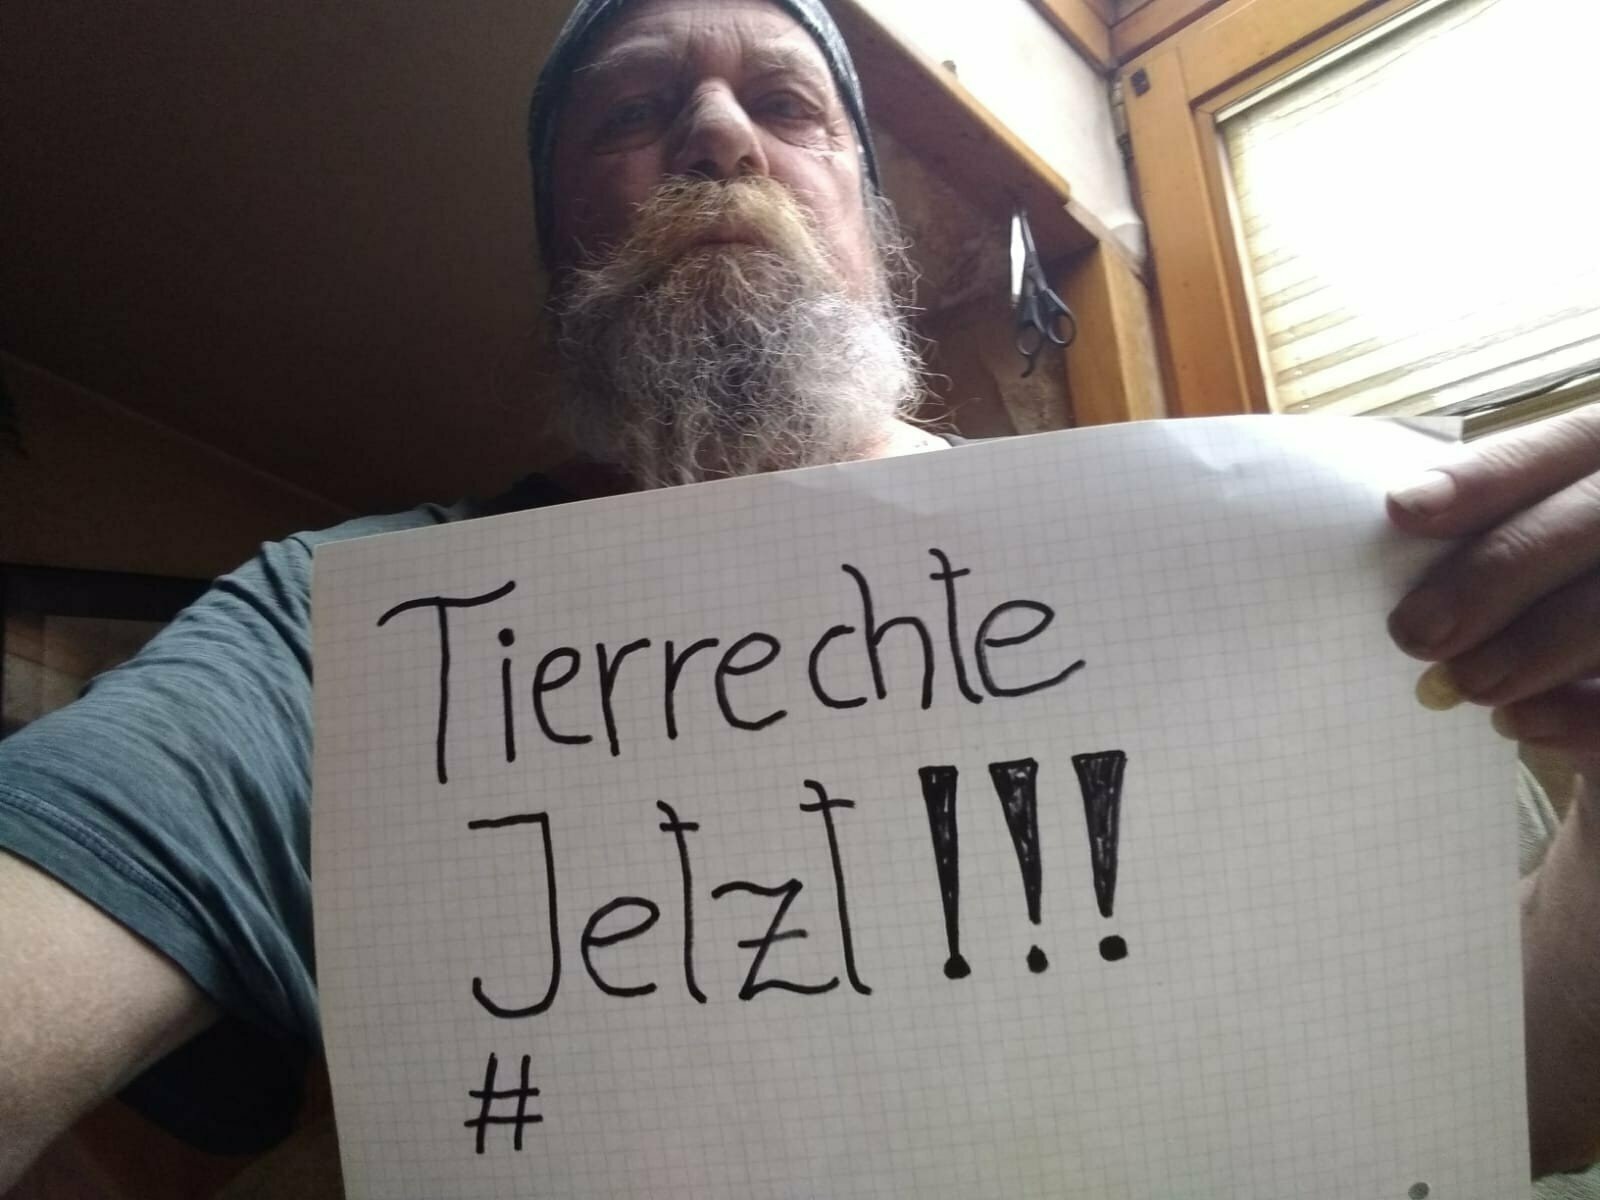 Tierrechte
Jetzt!!!
#